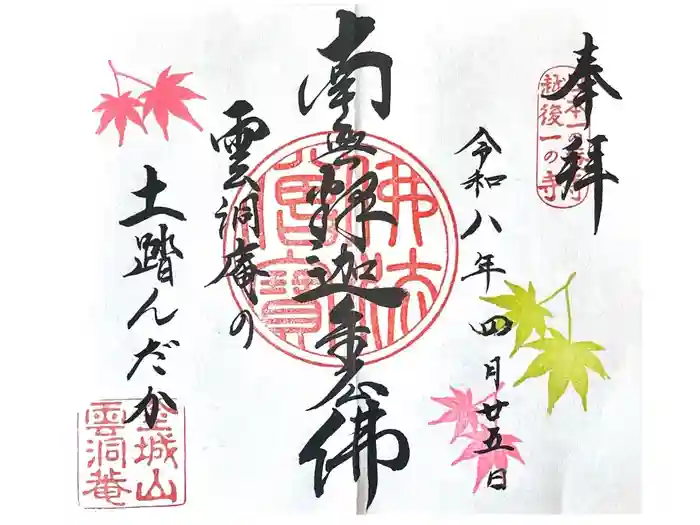 奉拝
越後一の寺
令和八年四月廿五日
南無釈迦牟尼佛
佛法僧寶
雲洞庵の
土踏んだか
金城山
雲洞菴